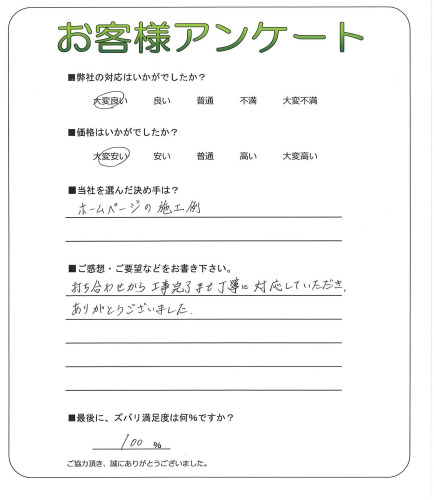 お客様アンケート
■弊社の対応はいかがでしたか？
大変良い 良い 普通 不満 大変不満
■価格はいかがでしたか？
大変安い 安い 普通 高い 大変高い
■当社を選んだ決め手は？
ホームページの施工例
■ご感想・ご要望などをお書き下さい。
打ち合わせから工事完了まで丁寧に対応していただき、
ありがとうございました。
■最後に、ズバリ満足度は何％ですか？
100 %
ご協力頂き、誠にありがとうございました。